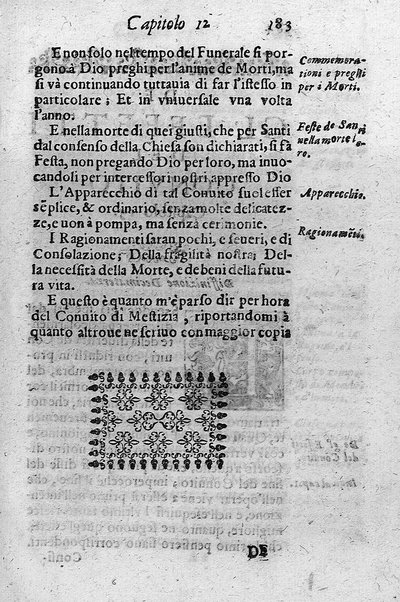 Capitolo 12 183
E non solo nel tempo del Funerale si por-
gono à Dio preghi per l'anime de Morti, ma
si và continuando tuttauia di far l'istesso in
particolare; Et in vniuersale vna volta
l'anno.
E nella morte di quei giusti, che per Santi
dal consenso della Chiesa son dichiarati, si fà
Festa, non pregando Dio per loro, ma inuo-
candosi per intercessori nostri appresso Dio
L'Apparecchio di tal Conuito suol esser
sẽplice, & ordinario, senza molte delicatez-
ze, e non à pompa, ma senza cerimonie.
I Ragionamenti saran pochi, e seueri, e di
Consolazione; Della fragilità nostra; Del-
la necessità della Morte, e de beni della futu-
ra vita.
E questo è quanto m'è parso dir per hora
del Conuito di Mestizia, riportandomi à
quanto altroue ne scriuo con maggior copia
Commemora-
tioni e preghi
per i Morti.
Feste de San-
ti nella morte lo-
ro.
Apparecchio.
Ragionamẽto.
DE